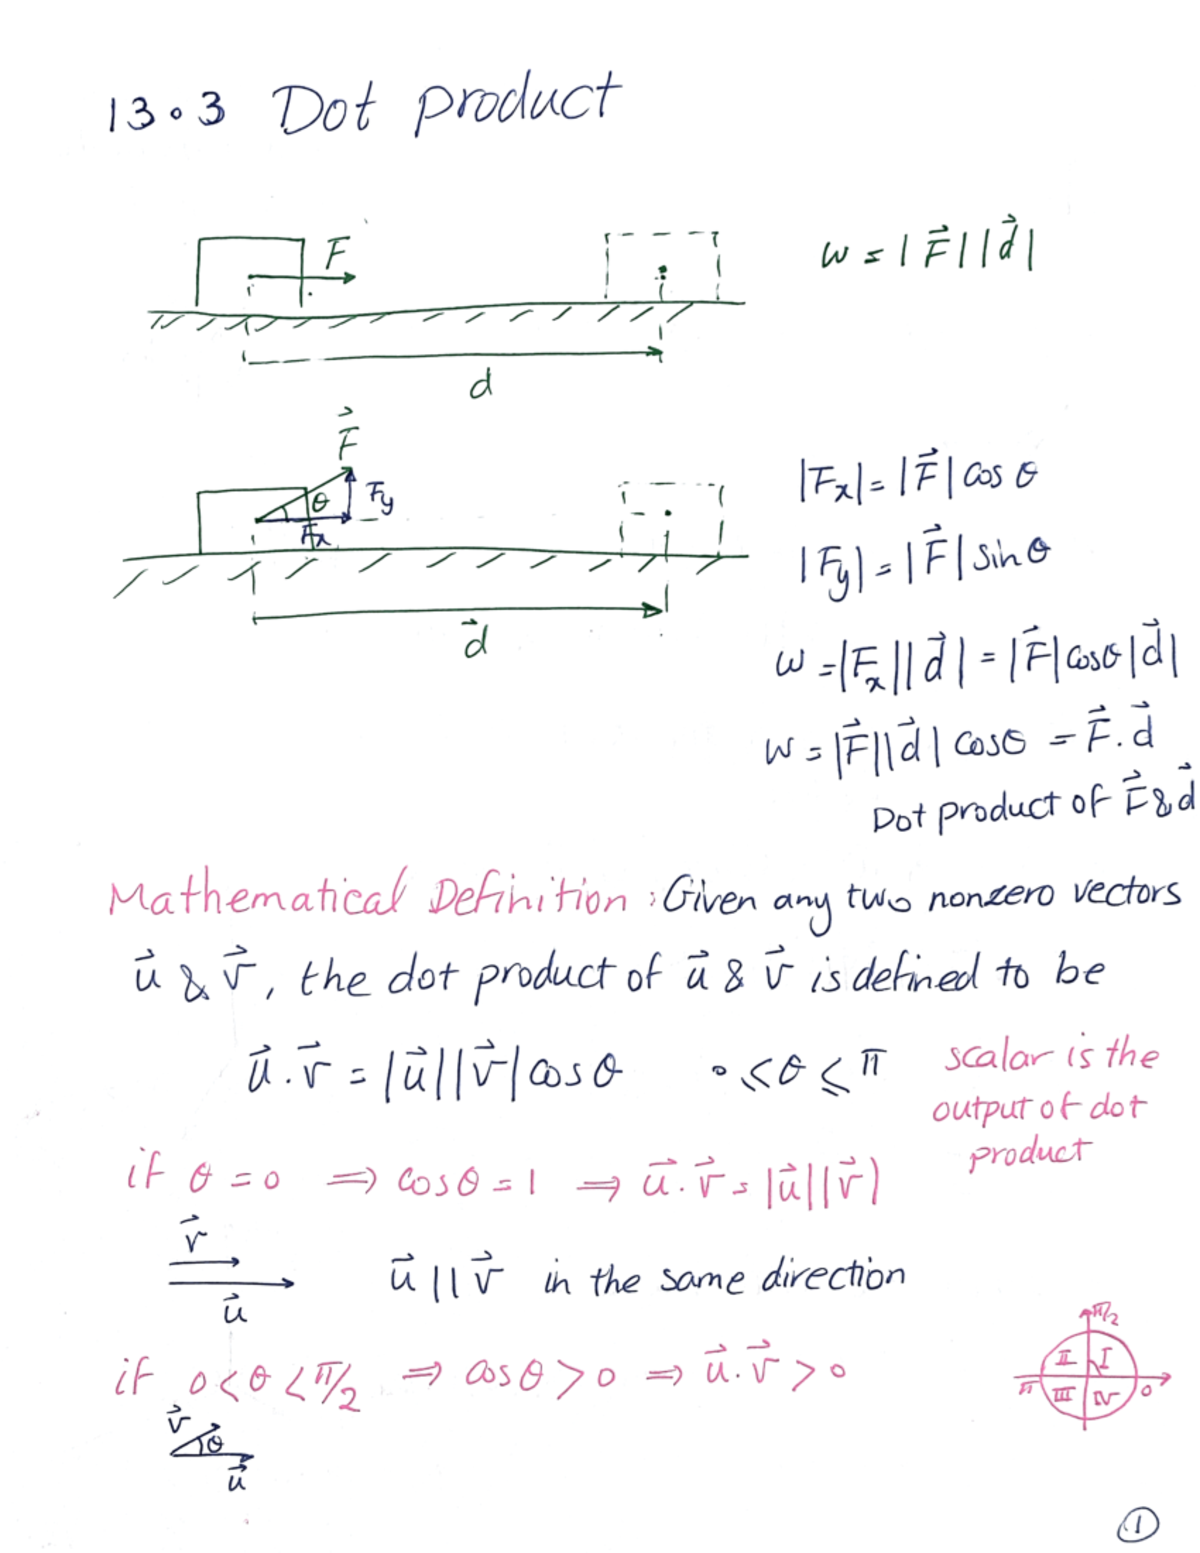 13.3 Dot product
F
w = |F⃗||d⃗|
d
F⃗
θ
Fy
Fx
|Fx| = |F⃗| cos θ
|Fy| = |F⃗| sin θ
d⃗
w = |Fx||d⃗| = |F⃗| cosθ |d⃗|
w = |F⃗||d⃗| cosθ = F⃗.d⃗
Dot product of F⃗ & d⃗
Mathematical Definition : Given any two nonzero vectors
u⃗ & v⃗, the dot product of u⃗ & v⃗ is defined to be
u⃗.v⃗ = |u⃗||v⃗| cos θ 0 ⩽ θ ⩽ π
scalar is the
output of dot
product
if θ = 0 ⇒ cos θ = 1 ⇒ u⃗.v⃗ = |u⃗||v⃗|
v⃗
u⃗
u⃗ || v⃗ in the same direction
if 0 < θ < π/2 ⇒ cos θ > 0 ⇒ u⃗.v⃗ > 0
v⃗
θ
u⃗
π/2
II I
π III IV 0
1